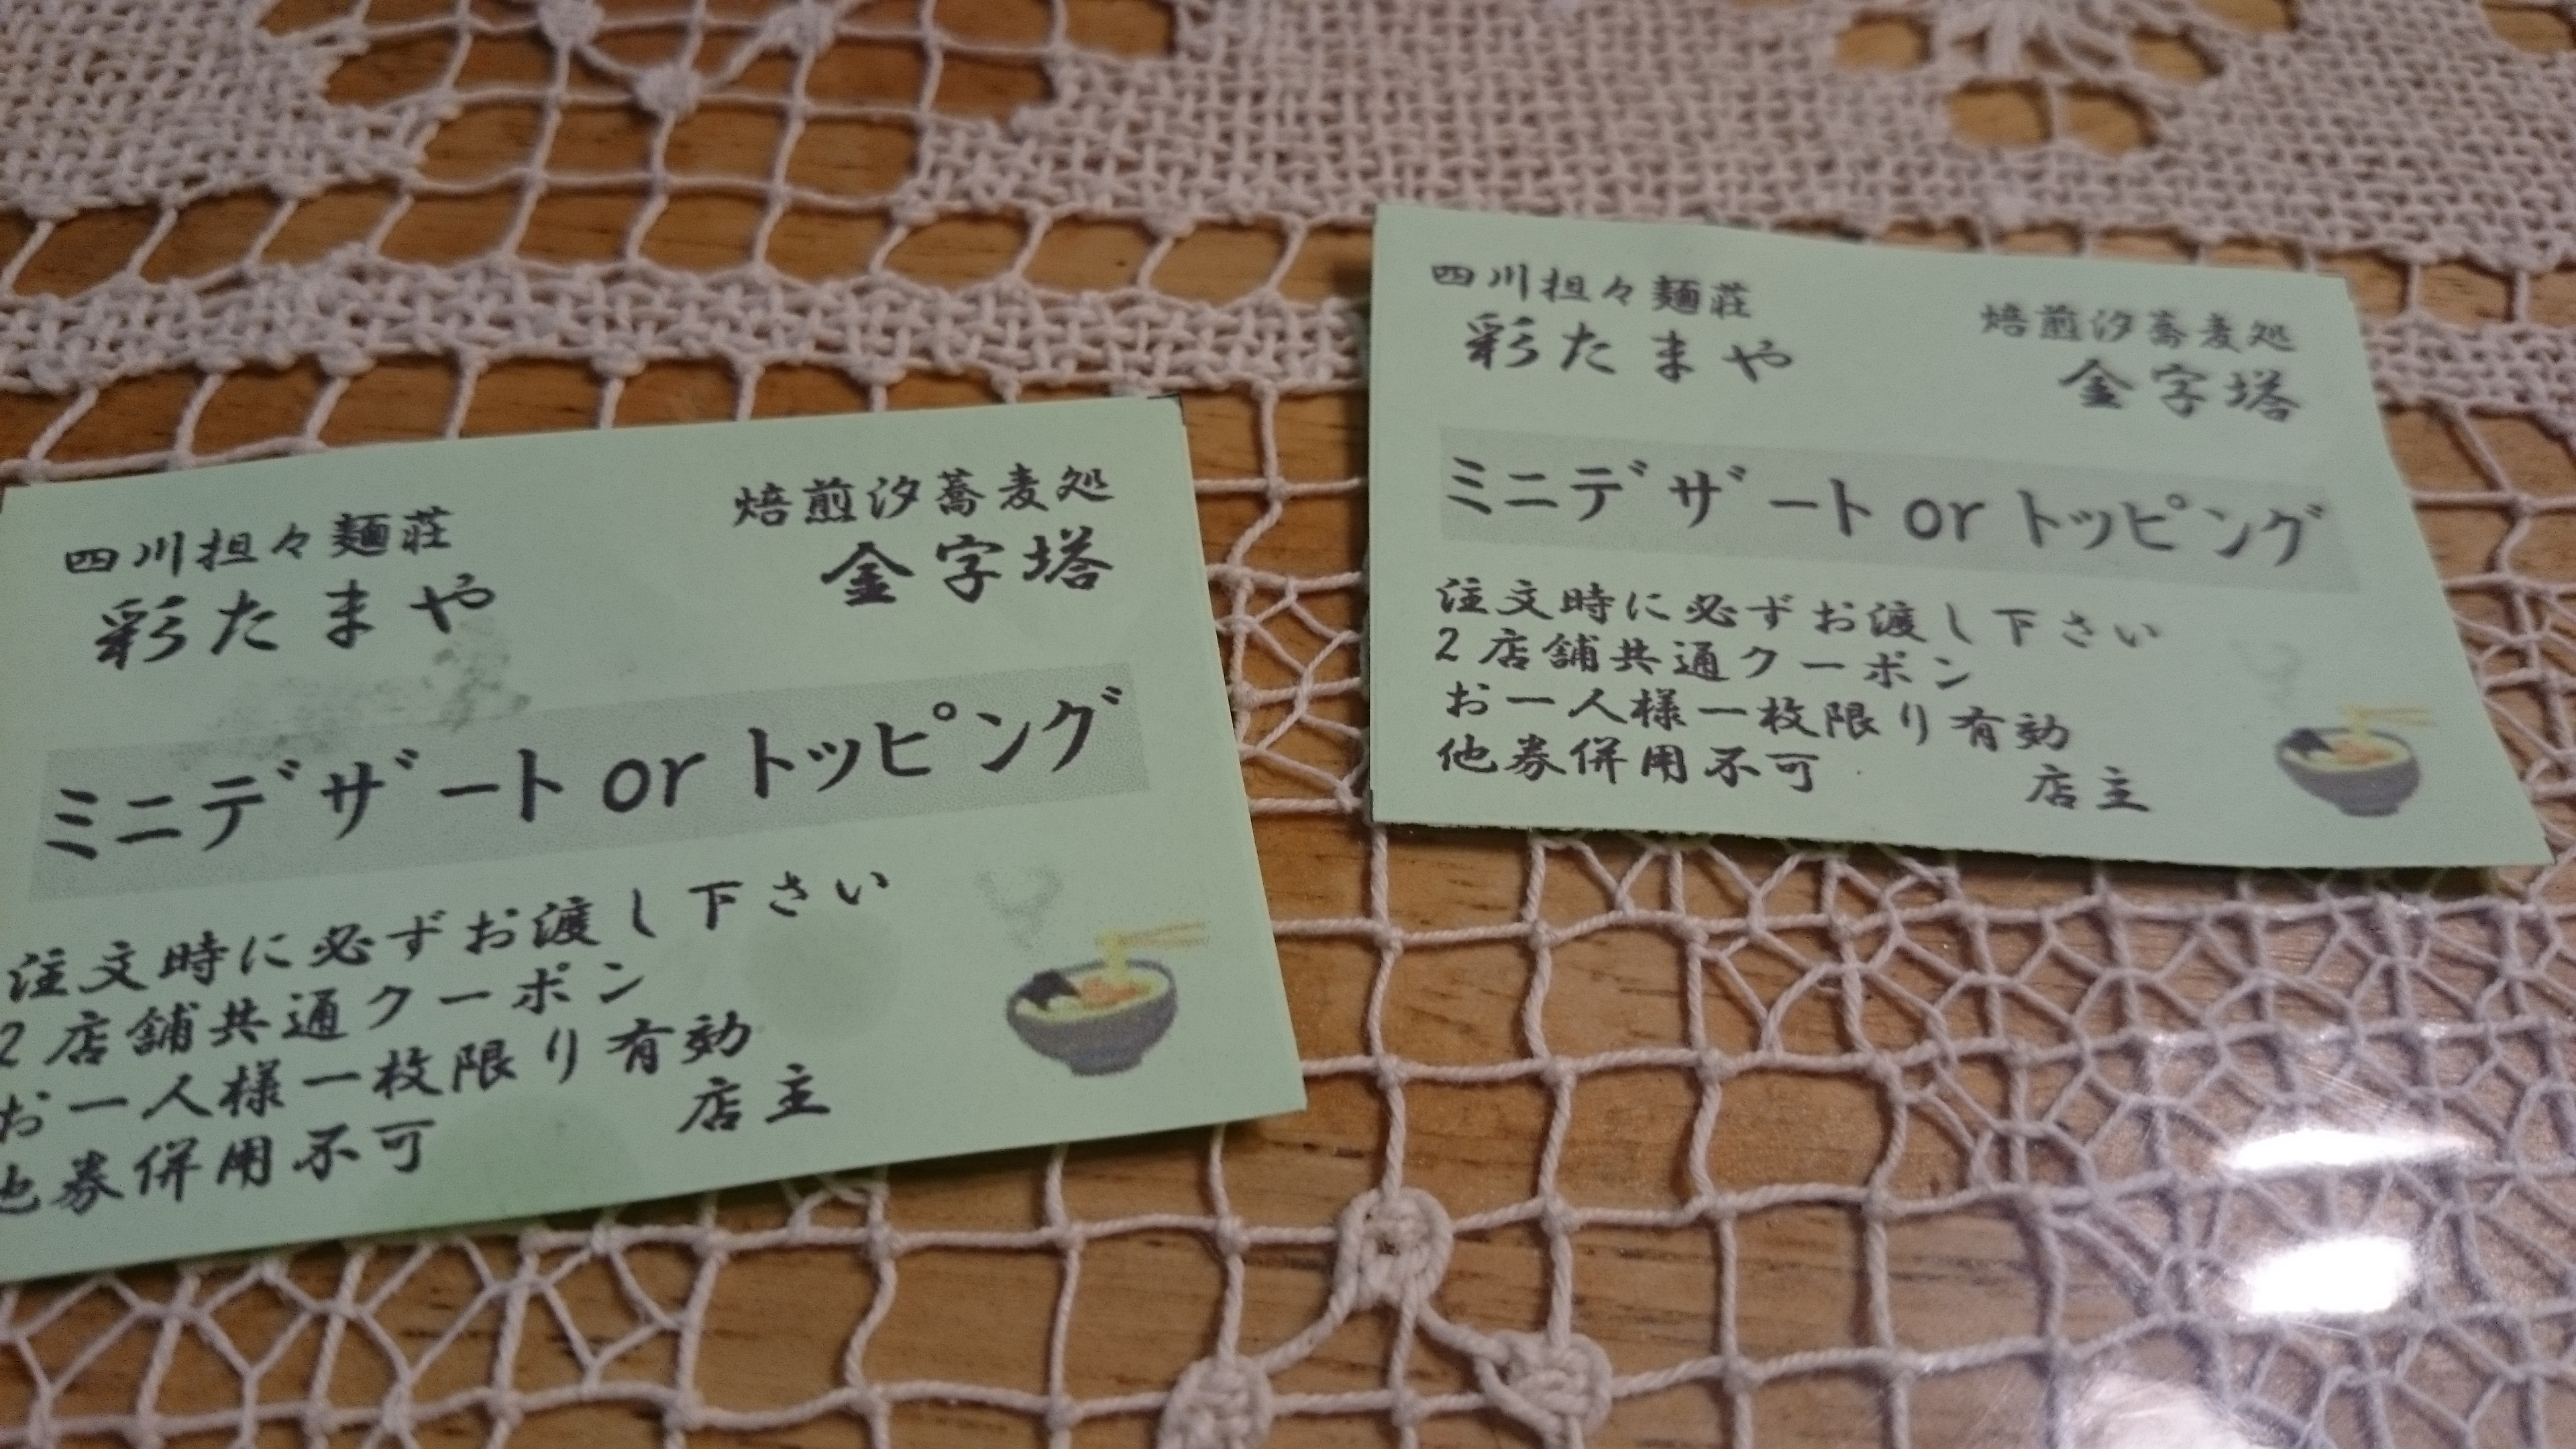 四川担々麺荘
彩たまや
焙煎汐蕎麦処
金字塔
ミニデザート or トッピング
注文時に必ずお渡し下さい
2店舗共通クーポン
お一人様一枚限り有効
他券併用不可
店主
四川担々麺荘
彩たまや
焙煎汐蕎麦処
金字塔
ミニデザート or トッピング
注文時に必ずお渡し下さい
2店舗共通クーポン
お一人様一枚限り有効
他券併用不可
店主